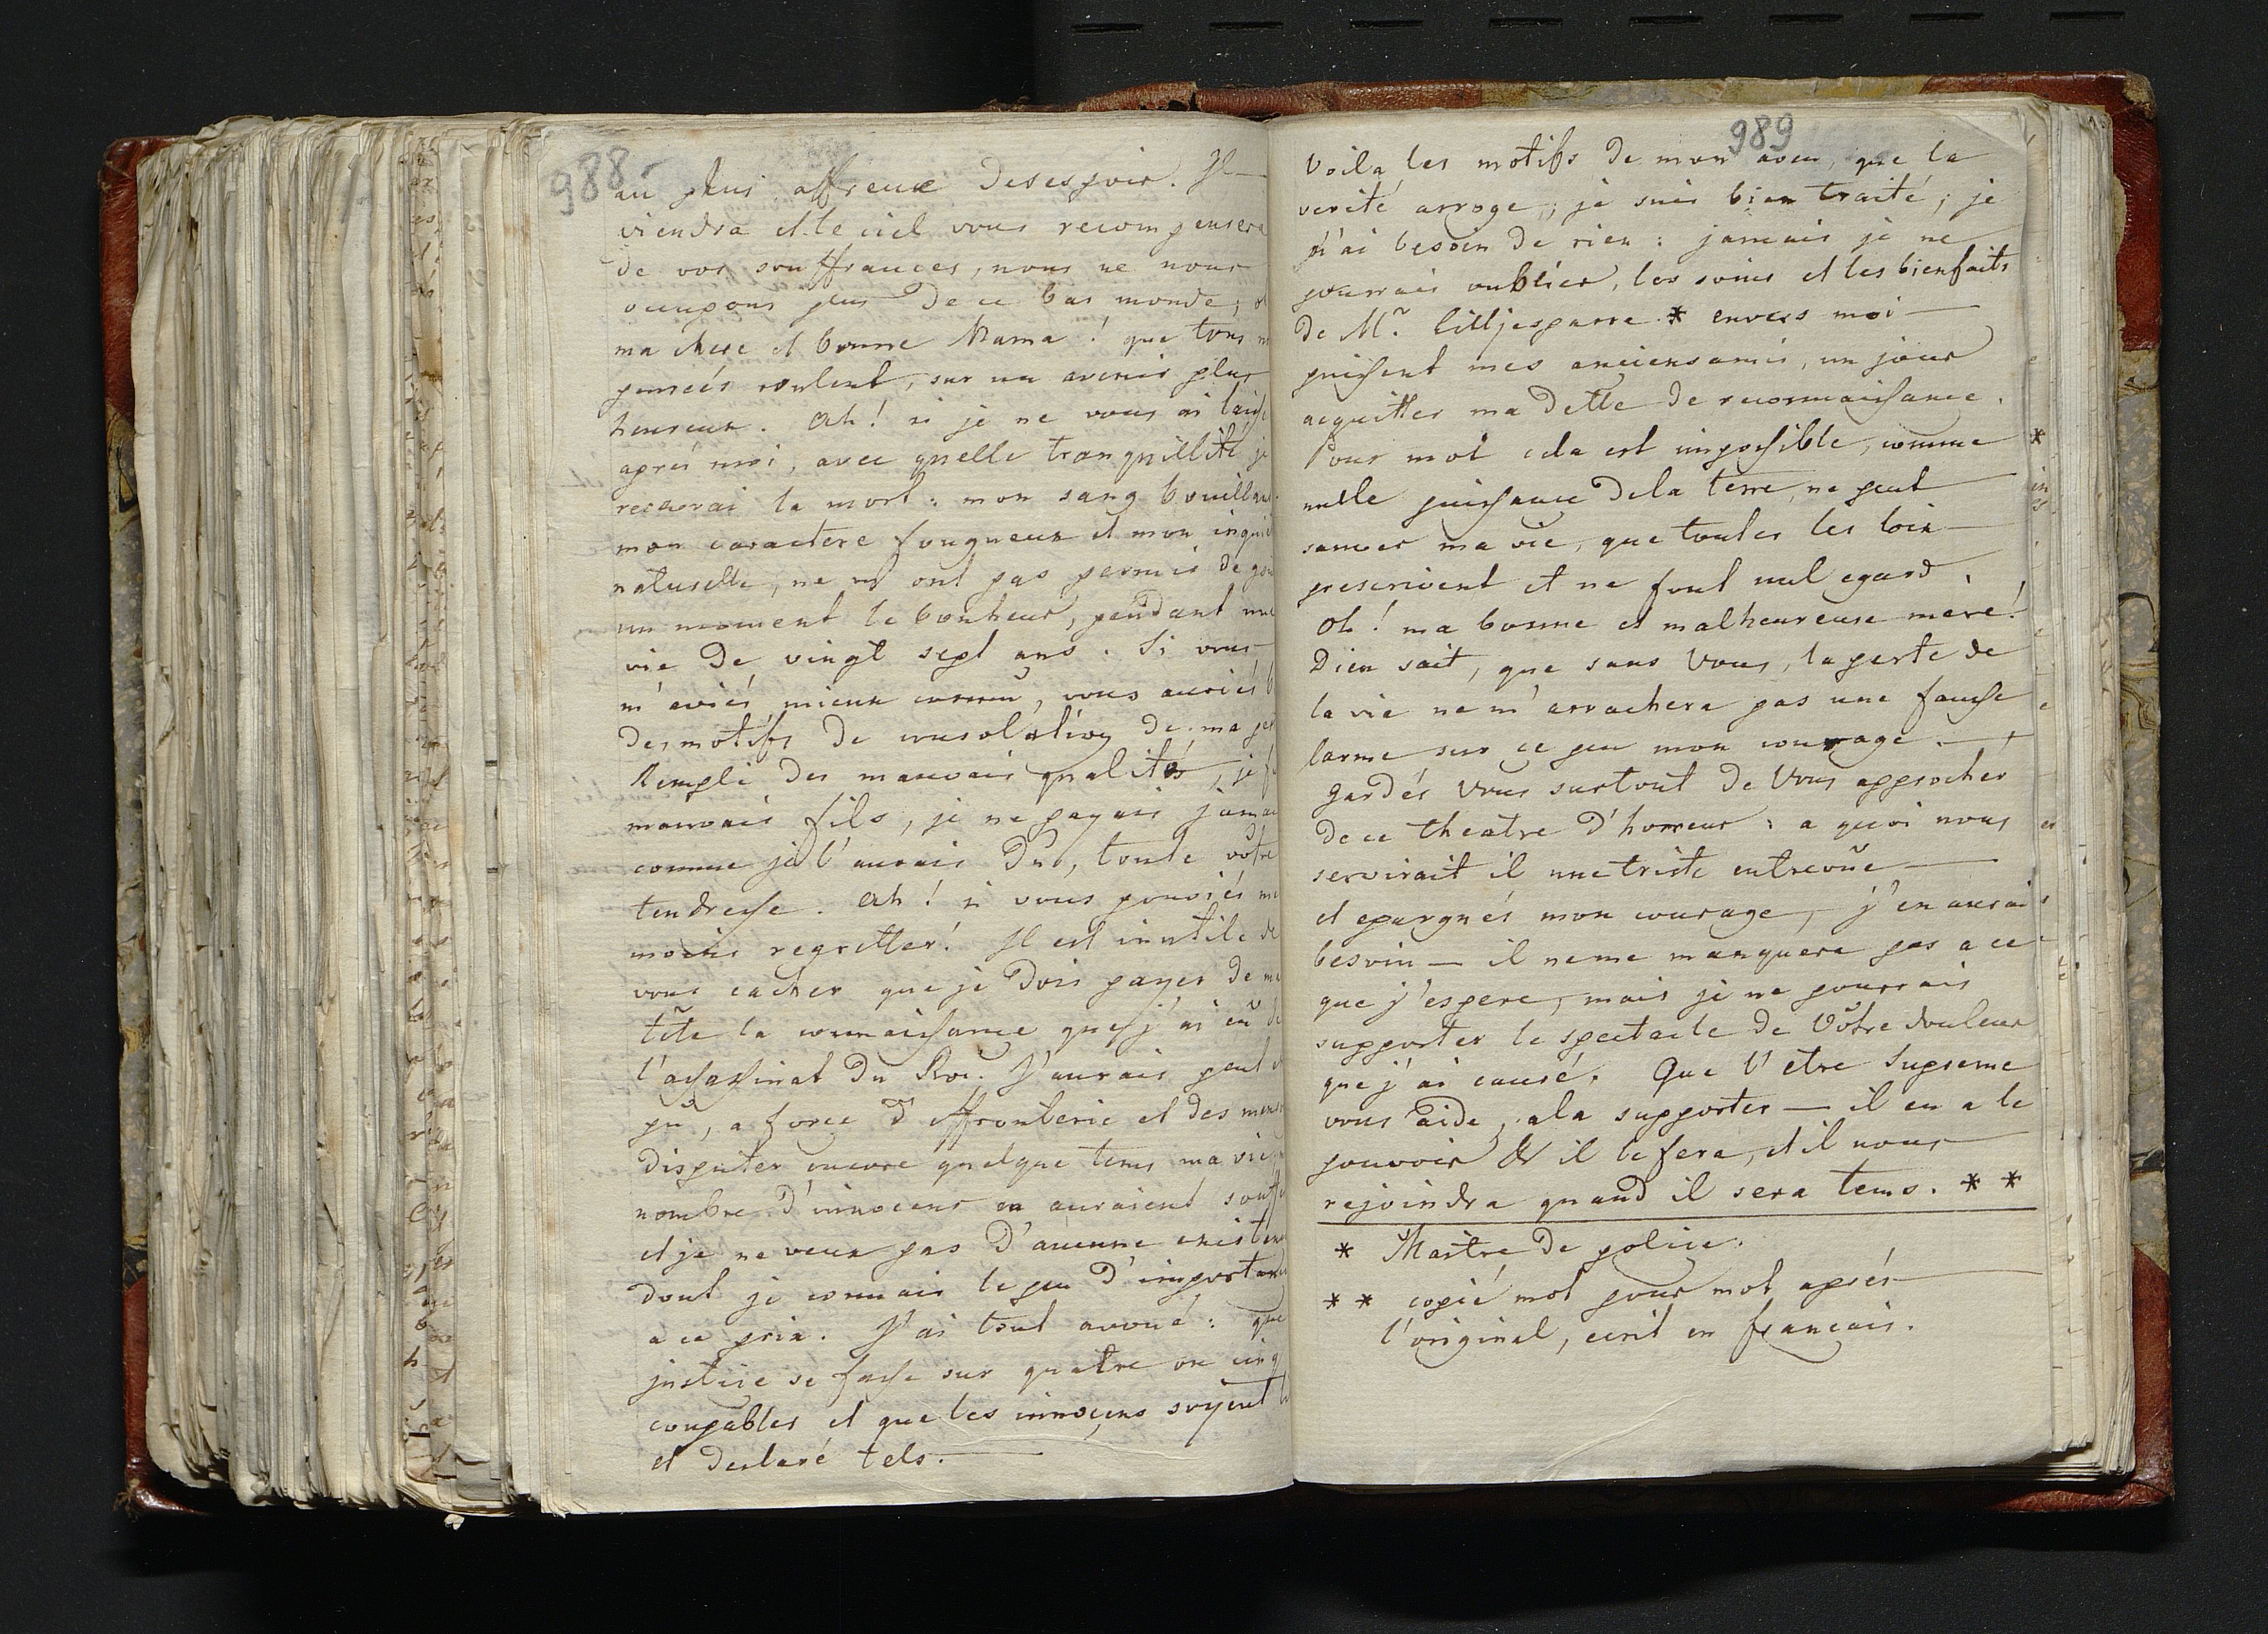 988
au plus affreux desespoir. Il
viendra et le ciel vous recompensera
de vos souffrances, nous ne nous
occupons plus de ce bas monde;
ma chere et bonne Mama! que tous
pensées roulent, sur un avenir plus
heureux. Ah! si je ne vous ai laissé
aprés moi, avec quelle tranquillité je
recevrai la mort: mon sang bouillant
mon caractere fougueux et mon inquié
naturelle, ne m'ont pas permis de
un moment le bonheur, pendant une
vie de vingt sept ans. Si vous
m'aviés mieux connû, vous auriés
des motifs de consolation de ma
Rempli des mauvais qualités, je
mauvais fils, je ne payais jamai
comme je l'aurais dû, toute vôtre
tendresse. Ah! si vous pouviés me
moins regretter! Il est inutile de
vous cacher que je dois payer de ma
tête la connaissance que j'ai eû de
l'assassinat du Roi. J'aurais peut
pû, a force d'effronterie et des
disputer encore quelque tems ma vie
nombre d'innocens en auraient
et je ne veux pas d'aucune existen
dont je connais le peu d'importance
a ce prix. J'ai tout avoué: que
justice se fasse sur quatre ou cinq
coupables et que les innoçens soyent
et declaré tels.
989
Voila les motifs de mon aveu, que la
verité arroge; je suis bien traité; je
n'ai besoin de rien: jamais je ne
pourrais oublier, les soins et les bienfaits
de Mr. Lilljesparre * envers moi
puissent mes anciens amis, un jour
acquitter ma dette de reconnaissance.
Pour moi cela est impossible, comme
nulle puissance de la terre, ne peut
sauver ma vie, que toutes les loix
prescrivent et ne font nul egard.
Oh! ma bonne et malheureuse mere!
Dieu sait, que sans Vous, la perte de
la vie ne m'arrachera pas une fausse
larme sur ce peu mon courage.
gardés Vous surtout de Vous approcher
de ce theatre d'horreur: a quoi nous
servirait il une triste entrevûe
et epargnés mon courage, j'en aurai
besoin — il ne me manquera pas a ce
que j'espere, mais je ne pourrais
supporter le spectacle de Vôtre douleur
que j'ai causé. Que l'etre Supreme
vous aide, a la supporter — il en a le
pouvoir & il le fera, et il nous
rejoindra quand il sera tems. * *
* Maitre de police.
* * copié mot pour mot aprés
l'original, ecrit en francais.